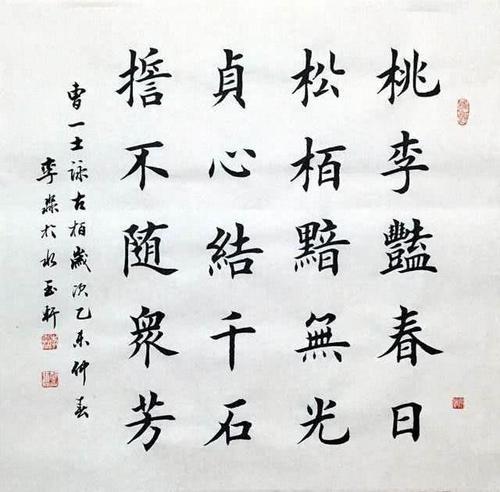 桃李豔春日
松栢黯無光
貞心結千石
擔不随衆芳
曹一士詠古栢歲次乙未仲春
李淼於水玉軒